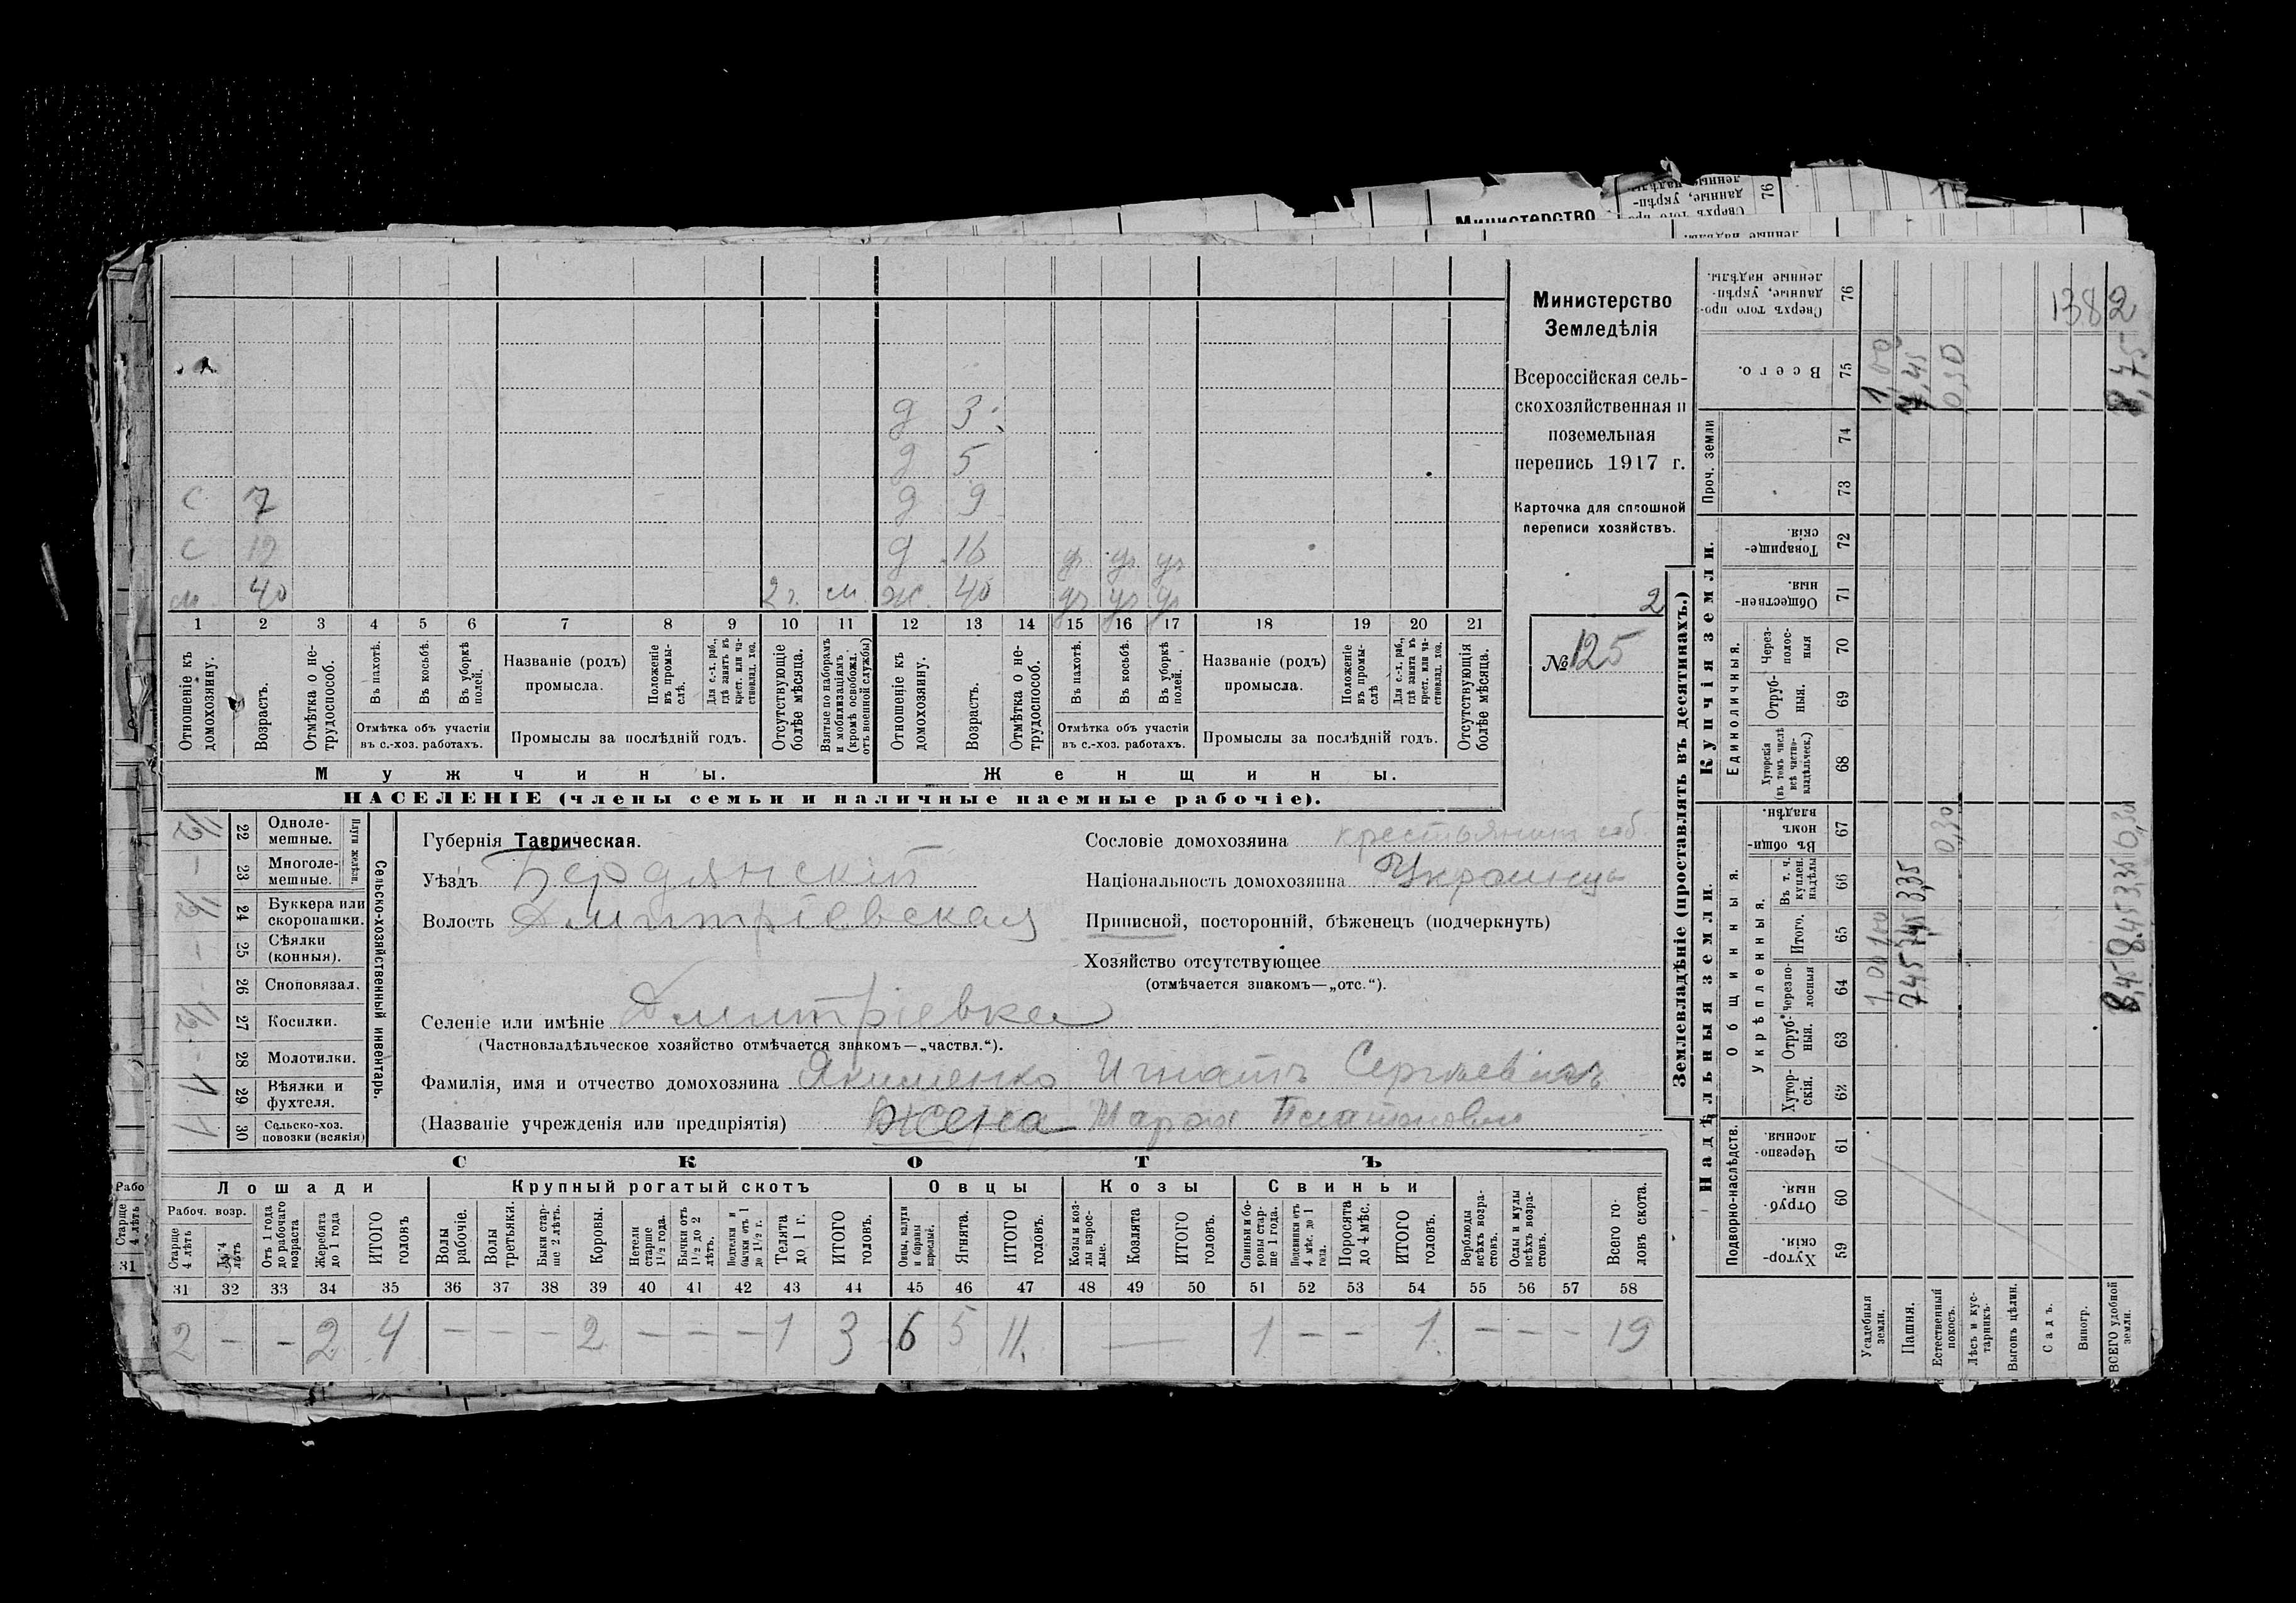 Министерство
Земледѣлія
Всероссійская сель-
скохозяйственная и
поземельная
перепись 1917 г.
Карточка для сплошной
переписи хозяйствъ.
2
№ 125
д 3
д 5
с 7 д 9
с 12 д 16 уг уг уг
м 40 2 г. м. ж. 40 уг уг уг
1 2 3 4 5 6 7 8 9 10 11 12 13 14 15 16 17 18 19 20 21
Отношеніе къ домохозяину.
Возрастъ.
Отмѣтка о не-трудоспособ.
Въ пахотѣ.
Въ косьбѣ.
Въ уборкѣ полей.
Отмѣтка объ участіи въ с.-хоз. работахъ.
Названіе (родъ) промысла.
Положеніе въ промы-слѣ.
Для с.-х. раб., гдѣ занятъ въ крест. или ча-стновлад. хоз.
Промыслы за послѣдній годъ.
Отсутствующіе болѣе мѣсяца.
Взятые по наборамъ и мобилизаціямъ (кромѣ освобожд. отъ военной службы)
Отношеніе къ домохозяину.
Возрастъ.
Отмѣтка о не-трудоспособ.
Въ пахотѣ.
Въ косьбѣ.
Въ уборкѣ полей.
Отмѣтка объ участіи въ с.-хоз. работахъ.
Названіе (родъ) промысла.
Положеніе въ промы-слѣ
Для с.-х. раб., гдѣ занята въ крест. или ча-стновлад. хоз.
Промыслы за послѣдній годъ.
Отсутствующія болѣе мѣсяца.
Мужчины. Женщины.
НАСЕЛЕНІЕ (члены семьи и наличные наемные рабочіе).
Сельско-хозяйственный инвентарь.
Плуги желѣзн.
22 Одноле-мешные. 1/2
23 Многоле-мешные. –
24 Буккера или скоропашки. 1/2
25 Сѣялки (конныя). –
26 Сноповязал. –
27 Косилки. 1/2
28 Молотилки. –
29 Вѣялки и фухтеля. 1
30 Сельско-хоз. повозки (всякія) 1
Губернія Таврическая.
Уѣздъ Бердянскій
Волость Дмитріевская
Селеніе или имѣніе Дмитріевка
(Частновладѣльческое хозяйство отмѣчается знакомъ—„частвл.“).
Фамилія, имя и отчество домохозяина Якименко Игнатъ Сергѣевичъ
(Названіе учрежденія или предпріятія) Жена Марфа Платоновна
Сословіе домохозяина крестьянинъ соб.
Національность домохозяина Украинцы
Приписной, посторонній, бѣженецъ (подчеркнуть)
Хозяйство отсутствующее
(отмѣчается знакомъ—„отс.“).
СКОТЪ
Лошади Крупный рогатый скотъ Овцы Козы Свиньи
Рабоч. возр.
Старше 4 лѣтъ
До 4 лѣтъ
Отъ 1 года до рабочаго возраста
Жеребята до 1 года
ИТОГО головъ
Волы рабочіе.
Волы третьяки.
Быки стар-ше 2 лѣтъ.
Коровы.
Нетели старше 1½ года.
Бычки отъ 1½ до 2 лѣтъ.
Подтелки и бычки отъ 1 до 1½ г.
Телята до 1 г.
ИТОГО головъ.
Овцы, валухи и бараны взрослые.
Ягнята.
ИТОГО головъ.
Козы и коз-лы взрос-лые.
Козлята
ИТОГО головъ.
Свиньи и бо-ровы стар-ше 1 года.
Подсвинки отъ 4 мѣс. до 1 года.
Поросята до 4 мѣс.
ИТОГО головъ.
Верблюды всѣхъ возра-стовъ.
Ослы и мулы всѣхъ возра-стовъ.
Всего го-ловъ скота.
31 32 33 34 35 36 37 38 39 40 41 42 43 44 45 46 47 48 49 50 51 52 53 54 55 56 57 58
2 – – 2 4 – – – 2 – – – 1 3 6 5 11 — 1 – – 1 – – – 19
Землевладѣніе (проставлять въ десятинахъ.)
Надѣльныя земли. Купчія земли. Проч. земли
Подворно-наслѣдств.
Общинныя.
Укрѣпленныя.
Единоличныя.
Хутор-скія. 59
Отруб-ныя. 60
Черезпо-лосныя. 61
Хутор-скія. 62
Отруб-ныя. 63
Черезпо-лосныя 64
Итого. 65
Въ т. ч. куплен. надѣлы 66
Въ общи-номъ владѣн. 67
Хуторскія (въ томъ числѣ всѣ частно-владѣльческ.) 68
Отруб-ныя. 69
Через-полос-ныя 70
Обществен-ныя. 71
Товарище-скія. 72
73
74
Всего. 75
Сверхъ того про-данные, укрѣп-ленные надѣлы. 76
Усадебныя земли. 1,00 1,00 1,00
Пашня. 7,45 7,45 3,35 7,45
Естественный покосъ. 0,30 0,30
Лѣсъ и кус-тарникъ.
Выгонъ цѣлин.
Садъ.
Виногр.
ВСЕГО удобной земли. 8,45 8,45 3,35 0,30 8,75
1382
Министерство
Рабо
Старше 4 лѣтъ
31